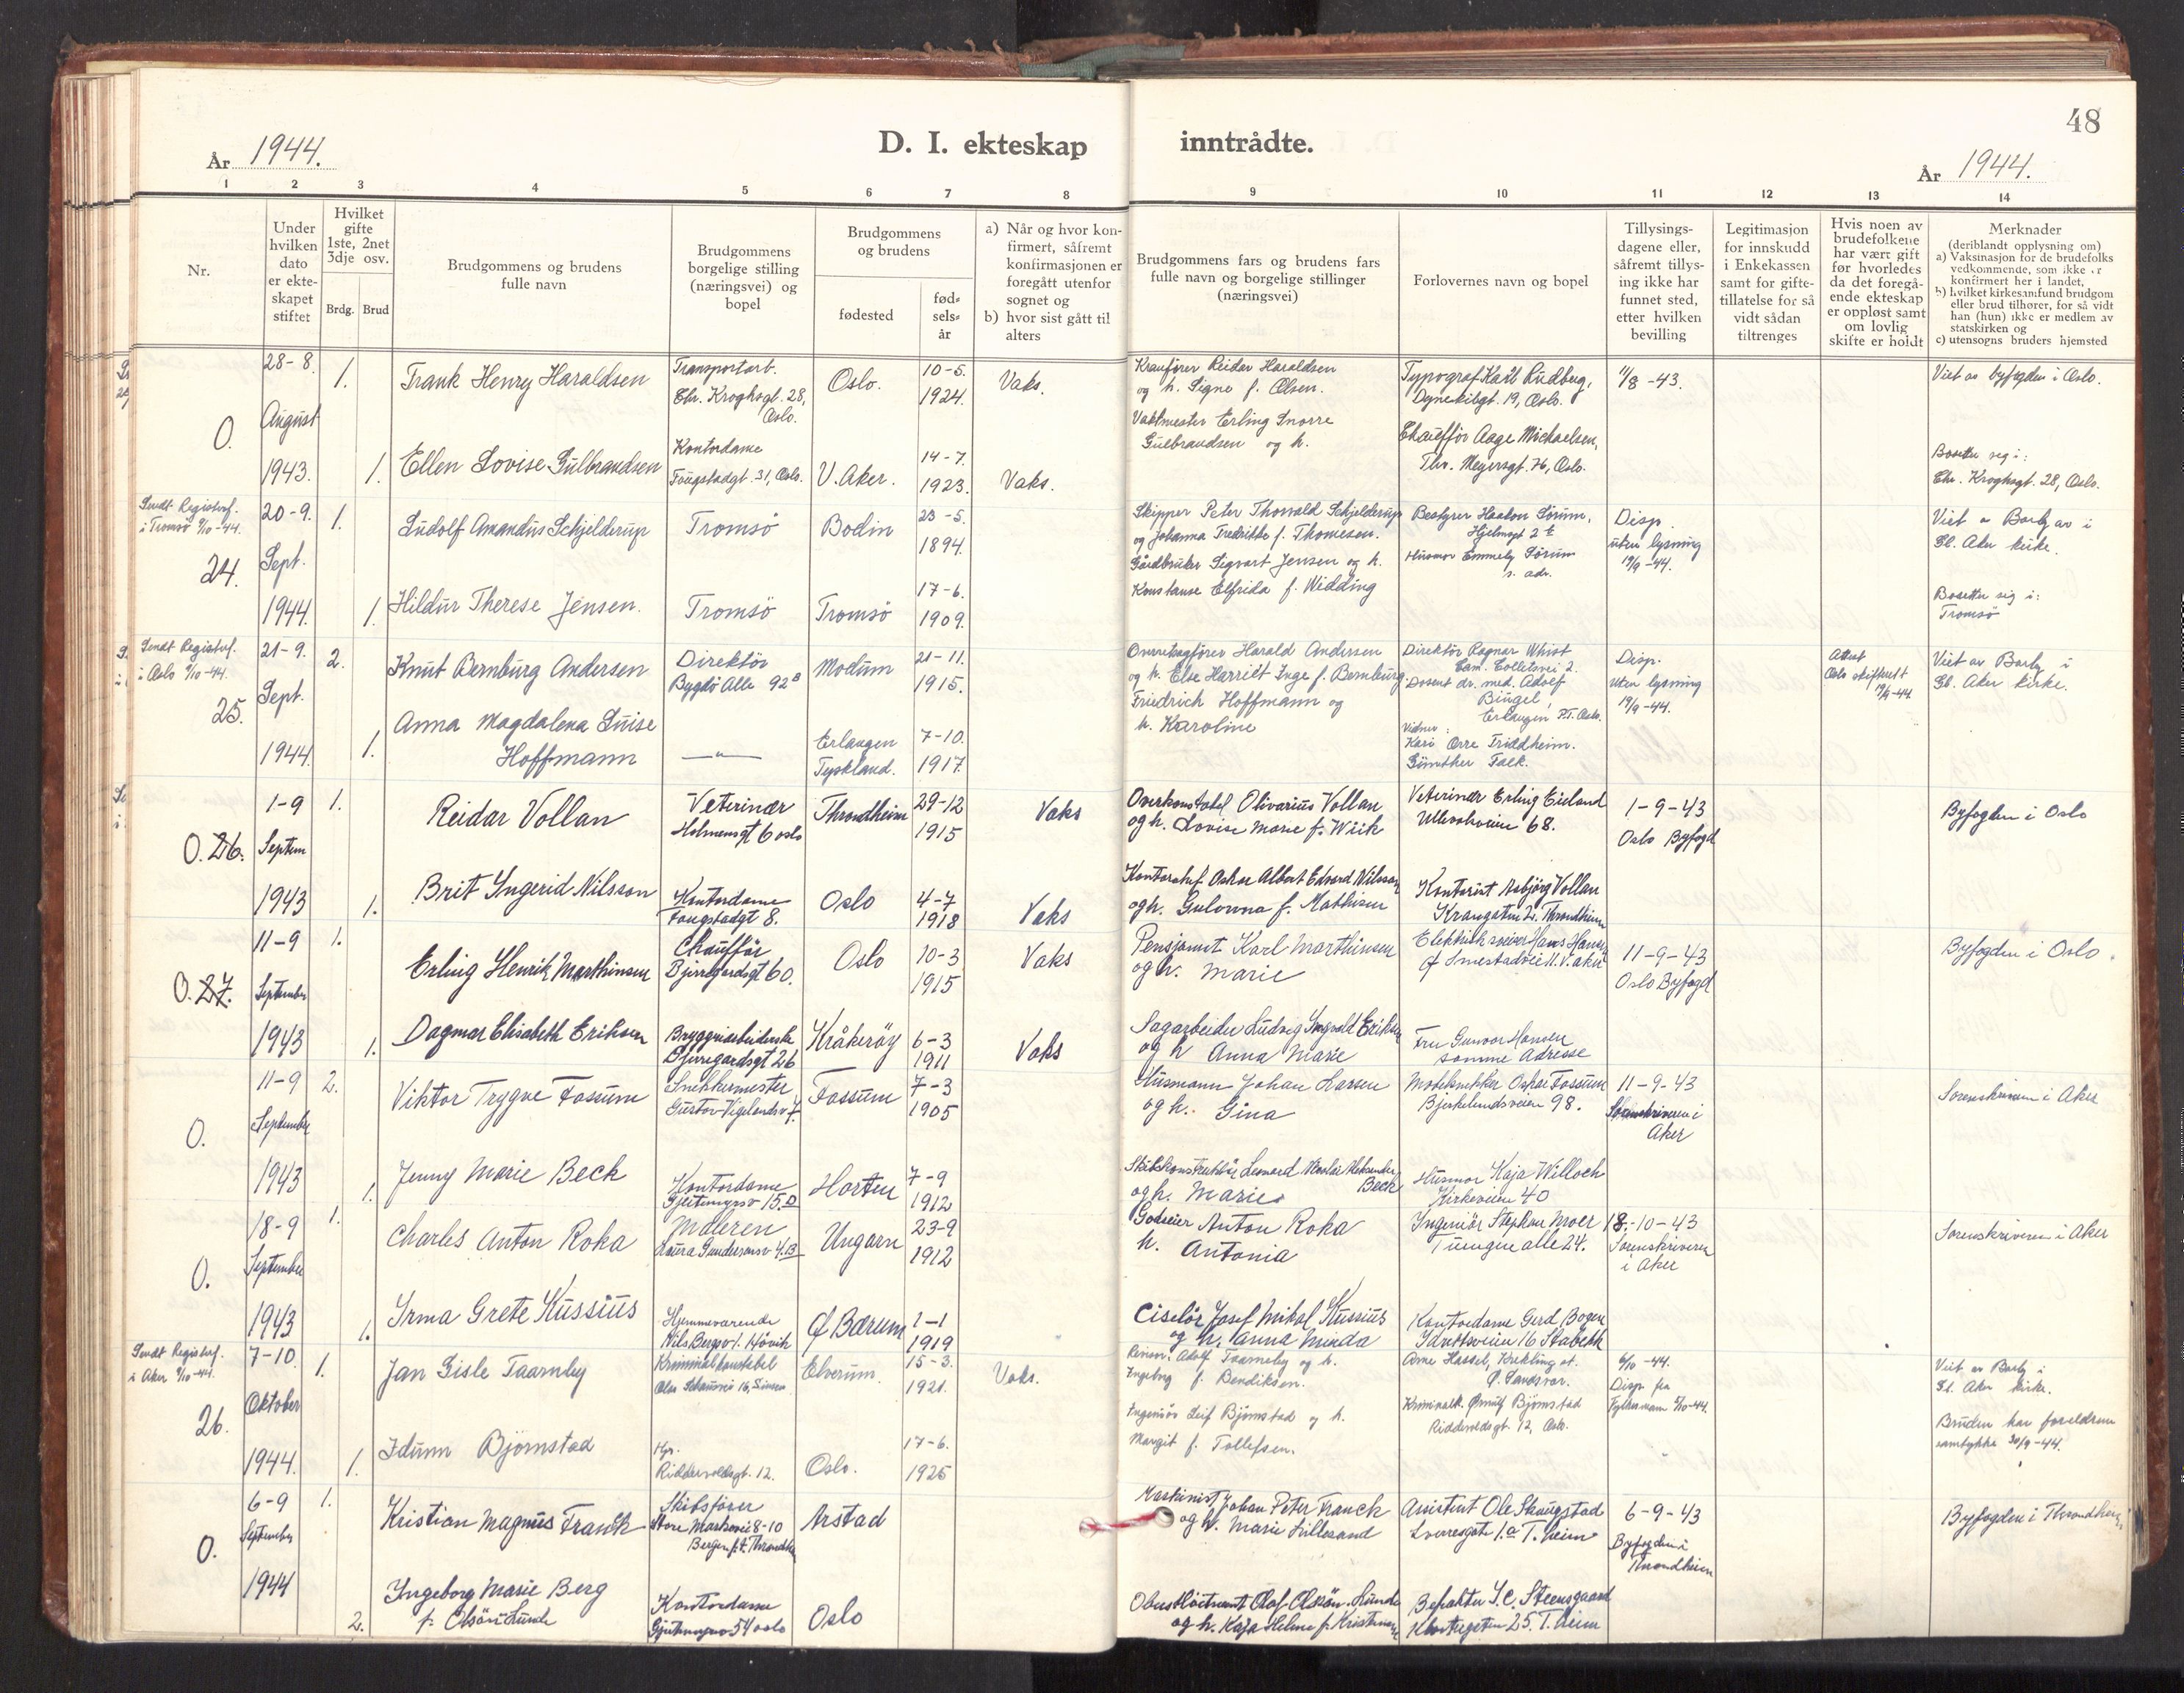 48
År 1944.
D. I. ekteskap inntrådte.
År 1944.
1 2 3 4 5 6 7 8 9 10 11 12 13 14
Nr.
Under hvilken dato er ekte-skapet stiftet
Hvilket gifte 1ste, 2net 3dje osv.
Brdg. Brud
Brudgommens og brudens fulle navn
Brudgommens borgelige stilling (næringsvei) og bopel
Brudgommens og brudens
fødested
fød-sels-år
a) Når og hvor kon-firmert, såfremt konfirmasjonen er foregått utenfor sognet og
b) hvor sist gått til alters
Brudgommens fars og brudens fars fulle navn og borgelige stillinger (næringsvei)
Forlovernes navn og bopel
Tillysings-dagene eller, såfremt tillys-ing ikke har funnet sted, etter hvilken bevilling
Legitimasjon for innskudd i Enkekassen samt for gifte-tillatelse for så vidt sådan tiltrenges
Hvis noen av brudefolkene har vært gift før hvorledes da det foregå-ende ekteskap er oppløst samt om lovlig skifte er holdt
Merknader
(deriblandt opplysning om)
a) Vaksinasjon for de brudefolks vedkommende, som ikke er konfirmert her i landet,
b) hvilket kirkesamfund brudgom eller brud tilhører, for så vidt han (hun) ikke er medlem av statskirken og
c) utensogns bruders hjemsted
O.
28-8. August 1943.
1. Frank Henry Haraldsen
Transportarb.
Chr. Kroghsgt. 28, Oslo.
Oslo.
10-5. 1924.
Vaks.
Reidar Haraldsen
og h. Signe f. Olsen.
Typograf Karl Rudberg,
Dynekilgt. 19, Oslo.
11/8-43.
Viet av byfogden i Oslo.
1. Ellen Lovise Gulbrandsen
Kontordame
Fougstadgt. 31, Oslo.
V. Aker.
14-7. 1923.
Vaks.
Vaktmester Erling Snorre
Gulbrandsen og h.
Chauffør Aage Michaelsen,
Thv. Meyersgt. 76, Oslo.
Bosetter seg i:
Chr. Kroghsgt. 28, Oslo.
Sendt Registerf.
i Tromsø 9/10-44.
24.
20-9. Sept. 1944.
1. Ludolf Amandus Schjelderup
Tromsø
Bodin
23-5. 1894.
Skipper Peter Thorvald Schjelderup
og Johanna Fredrikke f. Thomesen.
Bestyrer Haakon Sørum,
Hjelmsgt 2
Disp.
uten lysning
19/9-44.
Viet av Barby av i
Gl. Aker kirke.
1. Hildur Therese Jensen.
Tromsø
Tromsø
17-6. 1909.
Gårdbruker Sigvart Jensen og h.
Konstanse Elfrida f. Widding
Husmor Emmely Sørum
s. adr.
Bosetter sig i:
Tromsø
Sendt Registerf.
i Oslo 9/10-44.
25.
21-9. Sept. 1944.
2. Knut Bernburg Andersen
Direktør
Bygdø Alle 92 B
Modum
21-11. 1915.
Harald Andersen
og h. Else Harriet Inge f. Bernburg.
Direktør Ragnar Whist
Cam. Colletsvei 2.
Dosent dr. med. Adolf
Bingel,
Erlangen P.T. Oslo.
Vidner:
Kari Orre Friddheim.
Günther Falk.
Disp.
uten lysning
19/9-44.
Attest
Oslo skifterett
19/9-44.
Viet av Barby i
Gl. Aker kirke.
1. Anna Magdalena Luise
Hoffmann
— " —
Erlangen
Tyskland.
7-10. 1917.
Friedrich Hoffmann og
h. Karoline
O. 26.
1-9 Septem 1943
1. Reidar Vollan
Veterinær
Holmensgt 6 Oslo
Throndheim
29-12 1915
Vaks
Overkonstabel Olivarius Vollan
og h. Lovise Marie f. Wiik
Veterinær Erling Eieland
Ullevålsveien 68.
1-9-43
Oslo Byfogd
Byfogden i Oslo
1. Brit Ingerid Nilsson
Kontordame
Fougstadgt 8.
Oslo
4-7 1918
Vaks
Kontorchef Oskar Albert Edvard Nilsson
og h. Gulovna f. Mathisen
Kontorist Asbjørg Vollan
Throndheim
O. 27.
11-9 September 1943
1. Erling Henrik Marthinsen
Chauffør
Bjerregaardsgt 60.
Oslo
10-3 1915
Vaks
Pensjonist Karl Marthinsen
og h. Marie
Hans Hansen
Smestadveien 11. V. Aker
11-9-43
Oslo Byfogd
Byfogden i Oslo.
1. Dagmar Elisabeth Eriksen
Bryggeriarbeiderske
Bjerregaardsgt 26
Kråkerøy
6-3 1911
Vaks
Sagarbeider Ludvig Ingvald Eriksen
og h Anna Marie
Fru Gunvor Hansen
samme Adresse
O.
11-9 September 1943
2. Viktor Trygve Fossum
Snekkermester
Gustav Vigelandsv 7.
Fossum
7-3 1905
Husmann Johan Larsen
og h. Gina
Modelsnekker Oskar Fossum
Bjerkelundsveien 98.
11-9-43
Sorenskriveren i
Aker
Sorenskriveren i Aker
1. Jenny Marie Beck
Kontordame
Gjeitmyrsv 15. D
Horten
7-9 1912
Skibskonstruktør Leonard Nicolai Aleksander
Beck
og h. Marie.
Husmor Kaja Willoch
Kirkeveien 40
O.
18-9 September 1943
1. Charles Anton Roka
Maleren
Laura Gundersensv 4. B
Ungarn
23-9 1912
Godseier Anton Roka
h. Antonia
Ingeniør Stephan Moer
Tuengen alle 24.
18-10-43
Sorenskriveren
i Aker
Sorenskriveren i Aker
1. Irma Grete Kussius
Hjemmeværende
Nils Bergsv 1. Høvik
Ø Bærum
1-1 1919
Ciselør Josef Mikal Kussius
og h. Anna Minda
Kontordame Gerd Bogen
Idrettsveien 16 Stabekk
Sendt Registerf.
i Aker 9/10-44.
26.
7-10. Oktober 1944.
1. Jan Gisle Taarnby
Kriminalkonstabel
Olav Schousvei 16, Sinsen
Elverum.
15-3. 1921.
Vaks.
Adolf Taarneby og h.
Ingeborg f. Bendiksen.
Arne Hassel, Krekling st.
Ø. Sandsvær.
6/10-44.
Disp fra
Fylkesmann 5/10-44.
Viet av Barby i
Gl. Aker kirke.
1. Idunn Bjørnstad
Hjv.
Riddervoldsgt. 12.
Oslo.
17-6. 1925
Ingeniør Leif Bjørnstad og h.
Margit f. Tollefsen.
Kriminalk. Ørnulf Bjørnstad
Riddervoldsgt. 12, Oslo.
Bruden har foreldrene
samtykke 30/9-44.
O.
6-9 September 1944
1. Kristian Magnus Franck
Skibsfører
Store Markevei 8-10
Bergen p.t. Throndhm
Årstad
Maskinist Johan Peter Franck
og h. Marie Lillesand
Assistent Ole Skaugstad
Sverresgate 1.a T.heim
6-9-43
Byfogden i
Throndheim
Byfogden i Throndheim
2. Ingeborg Marie Berg
f. Olsøn Lunde
Kontordame
Gjeitmyrsv 54 Oslo
Oslo
Oberstløitnant Olaf Olsøn-Lunde
og h. Kaja Helene f. Kristensen
S. C. Steensgaard
25. T.heim